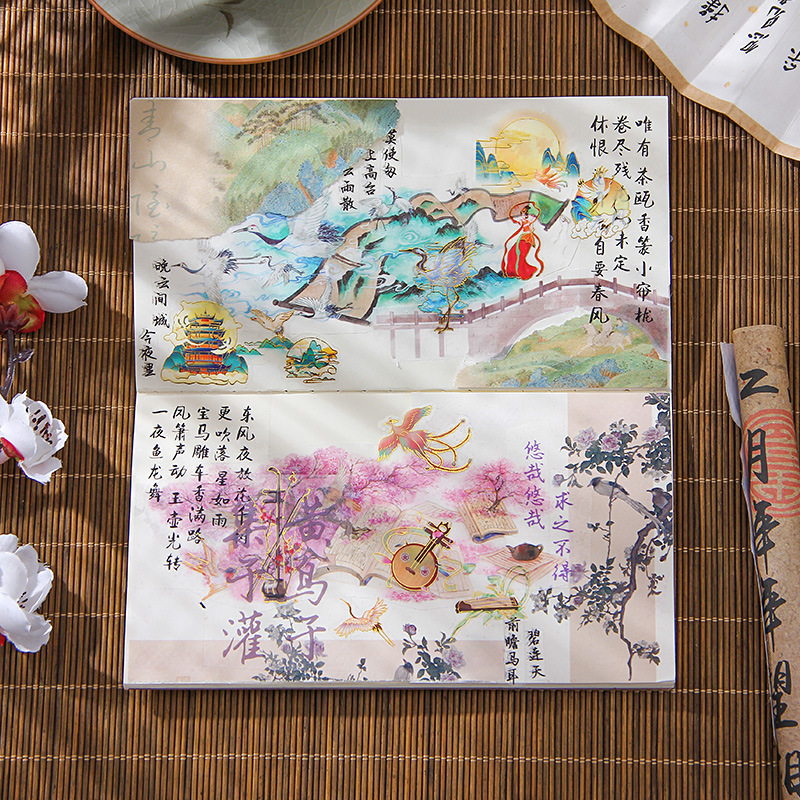 唯有茶瓯香篆小帘栊
卷尽残 未定
休恨 自要春风
莫使匆
上高台
云雨散
青山
晚云间城
今夜星
东风夜放花千树
更吹落星如雨
宝马雕车香满路
凤箫声动 玉壶光转
一夜鱼龙舞
悠哉悠哉
求之不得
黄鸢子
灌
碧连天
前瞻马耳
二月